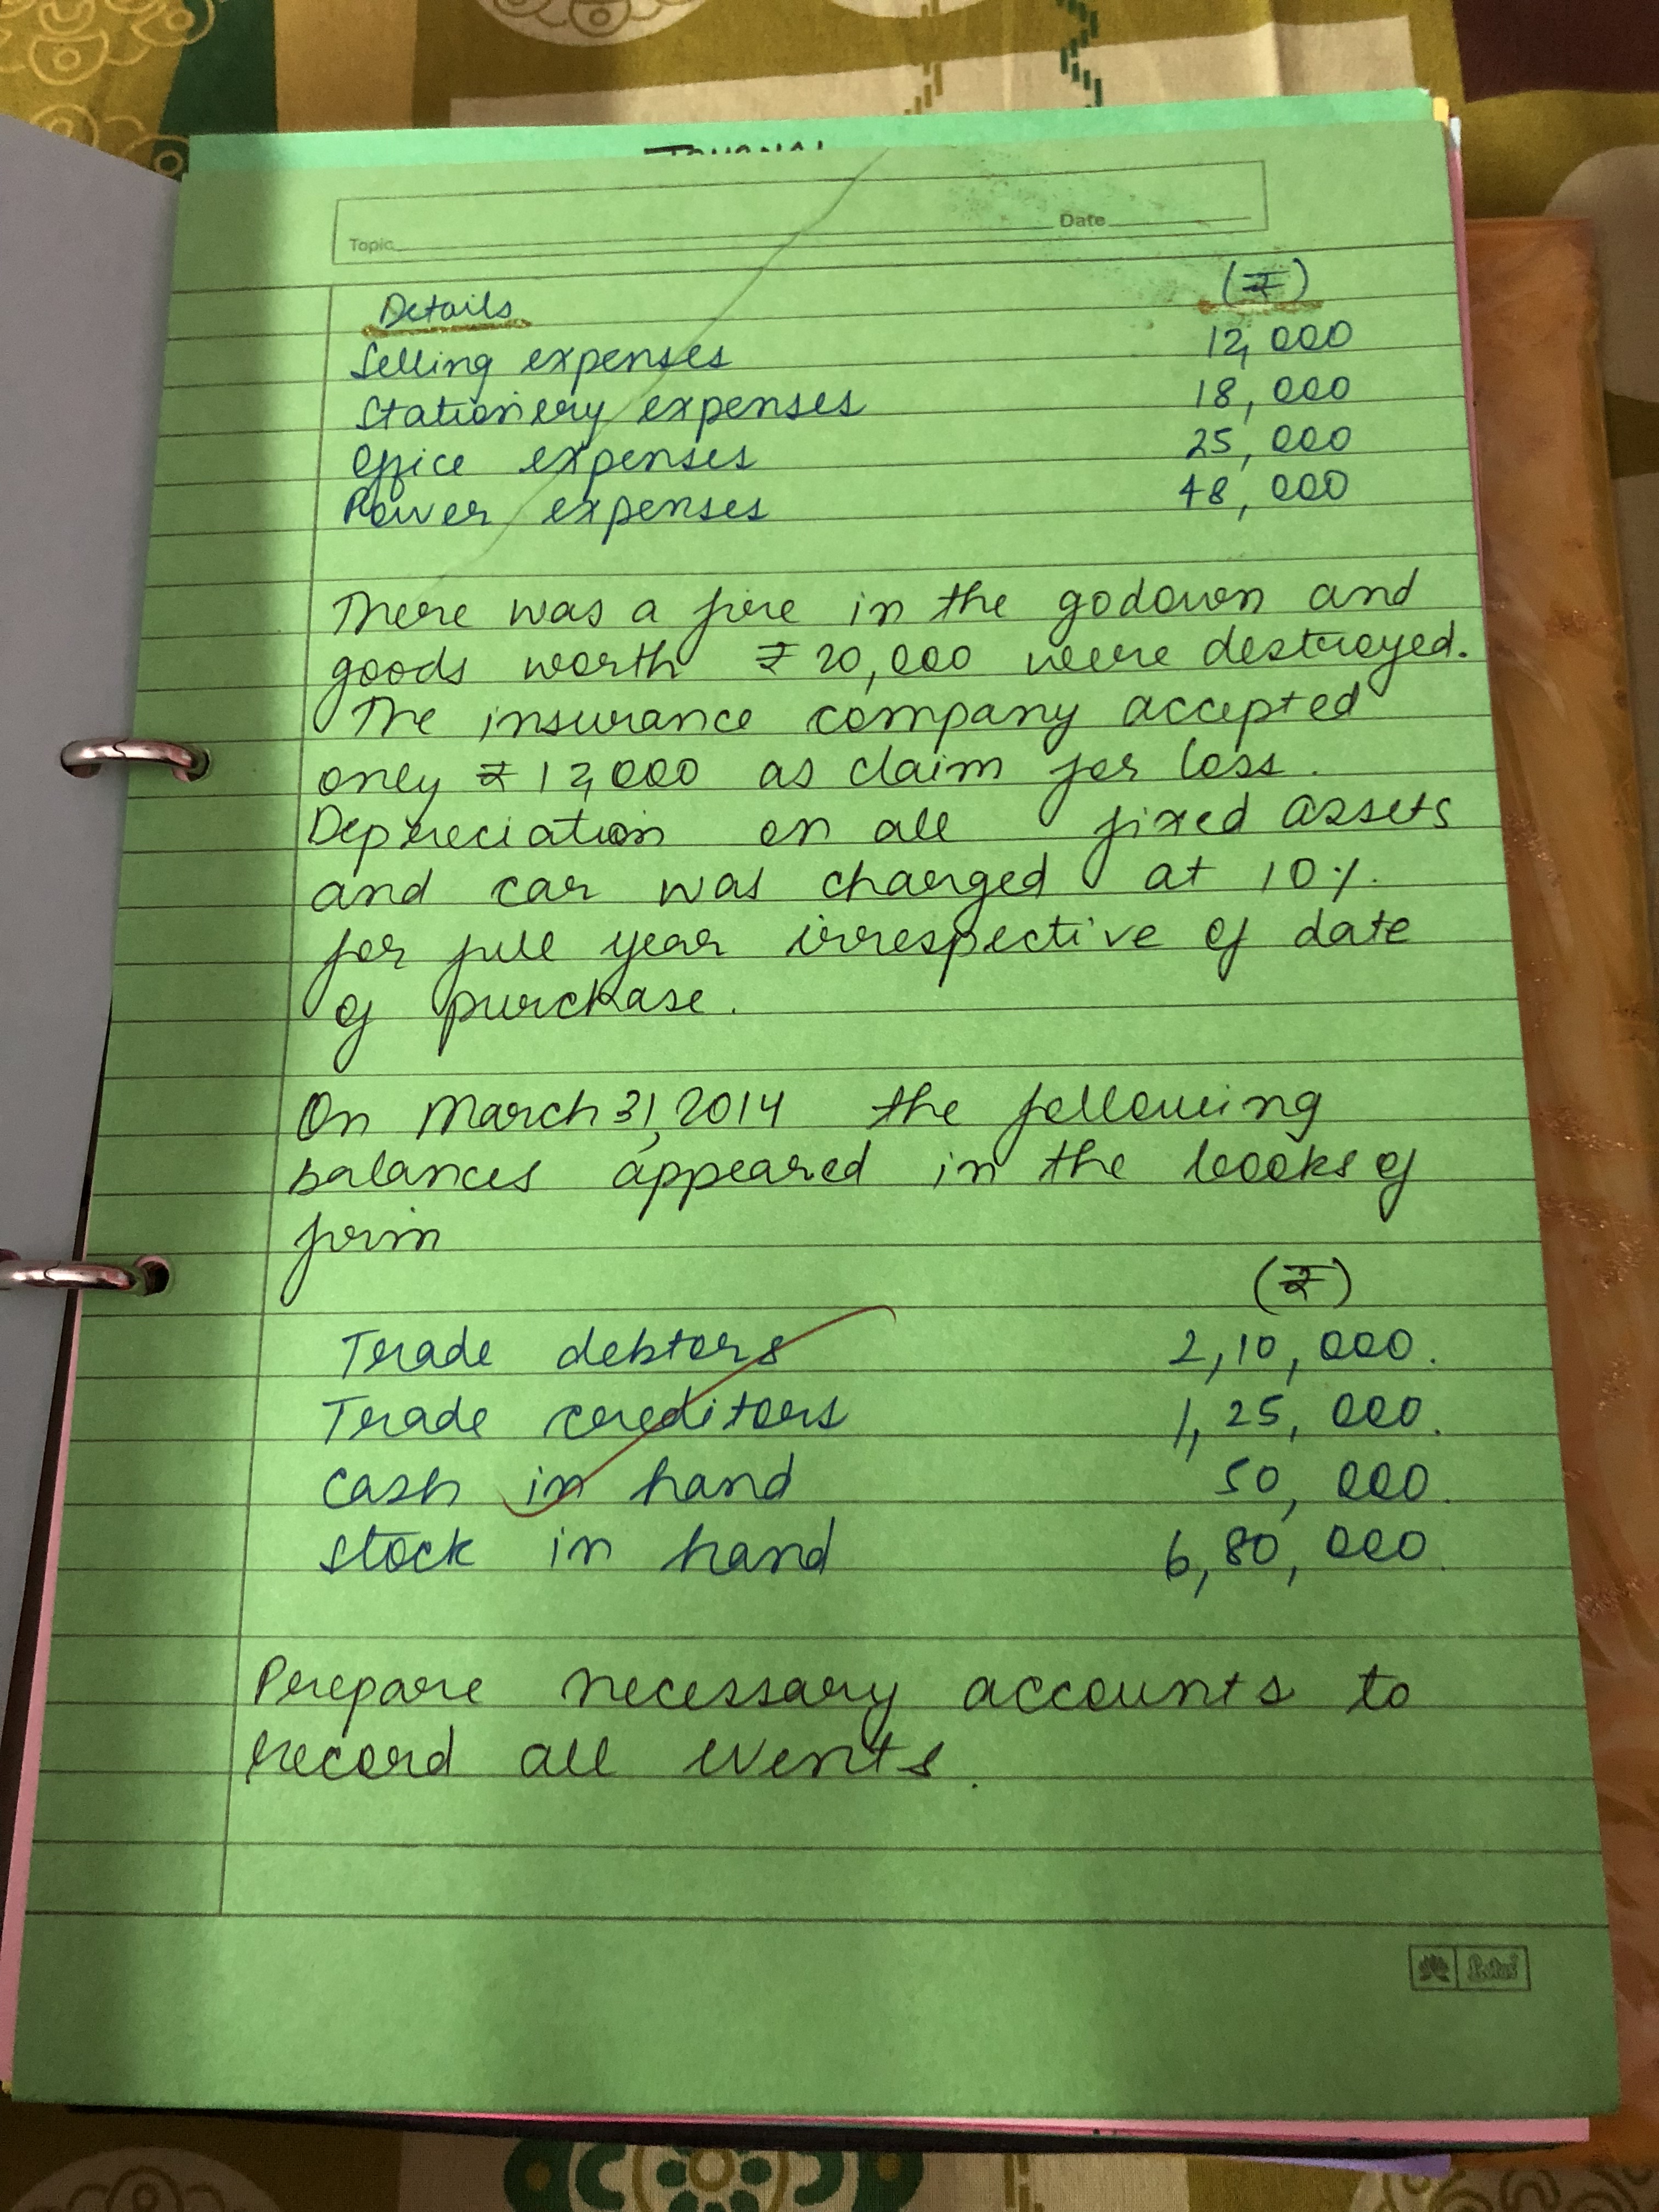 JOURNAL
Topic Date
Details (₹)
Selling expenses 12,000
Stationery expenses 18,000
Office expenses 25,000
Power expenses 48,000
There was a fire in the godown and
goods worth ₹ 20,000 were destroyed.
The insurance company accepted
only ₹ 12,000 as claim for loss.
Depreciation on all fixed assets
and car was charged at 10%.
for full year irrespective of date
of purchase.
On March 31, 2014 the following
balances appeared in the books of
firm
(₹)
Trade debtors 2,10,000.
Trade creditors 1,25,000.
Cash in hand 50,000.
Stock in hand 6,80,000.
Prepare necessary accounts to
record all events.
Lotus